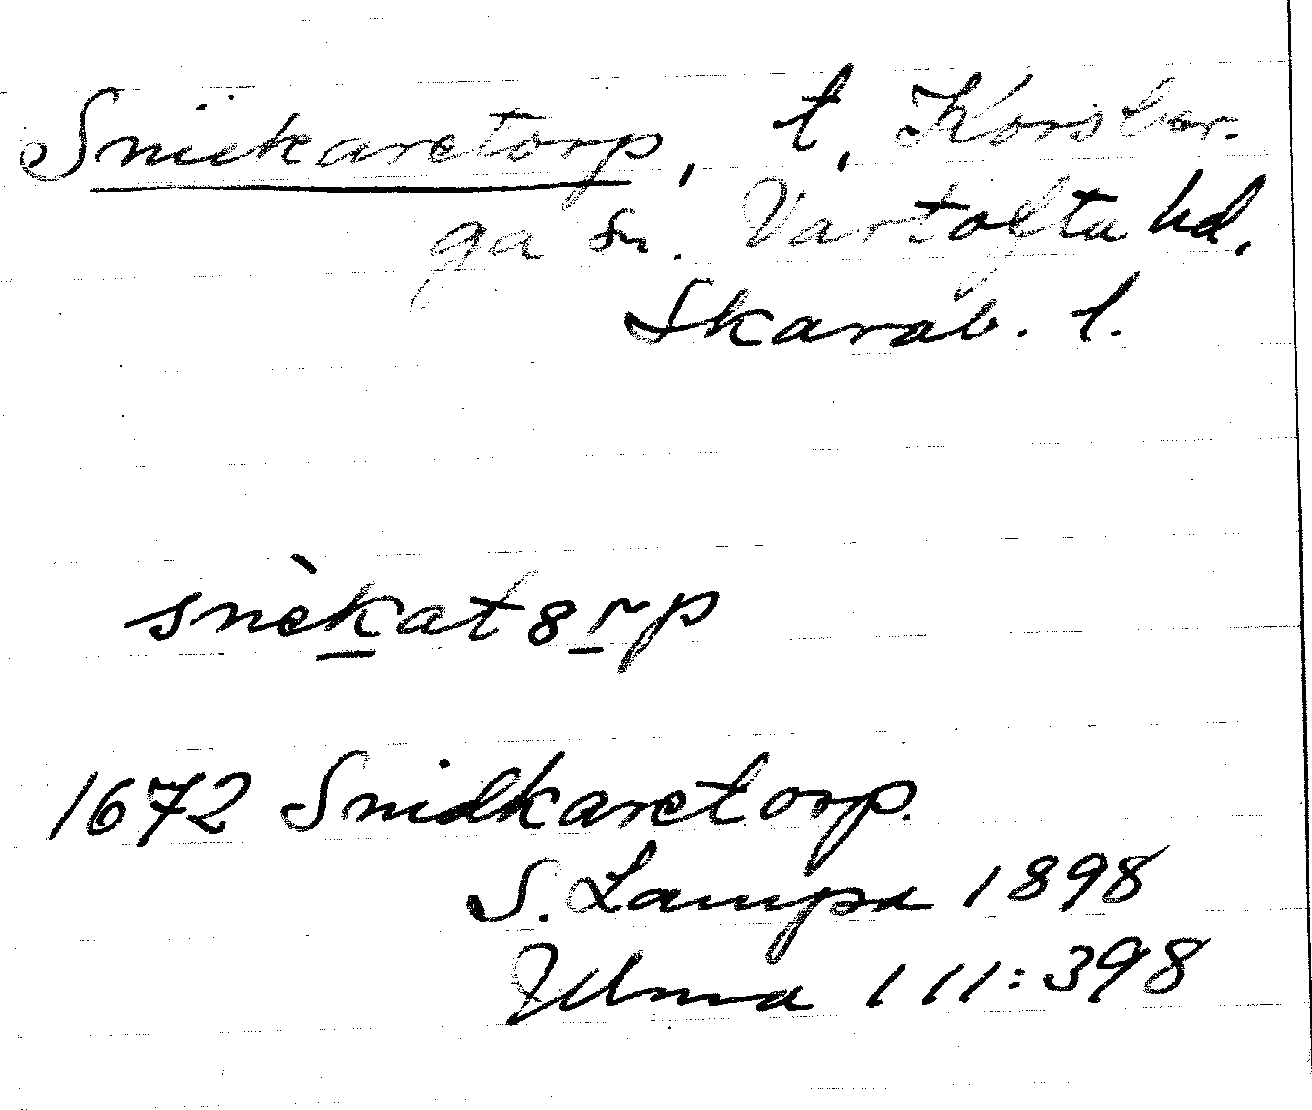 Snickaretorp, t, Korsber-
ga sn. Vartofta hd,
Skarab. l.
snèkat8rp
1672 Snidkaretorp.
S. Lampa 1898
Ulma 111:398